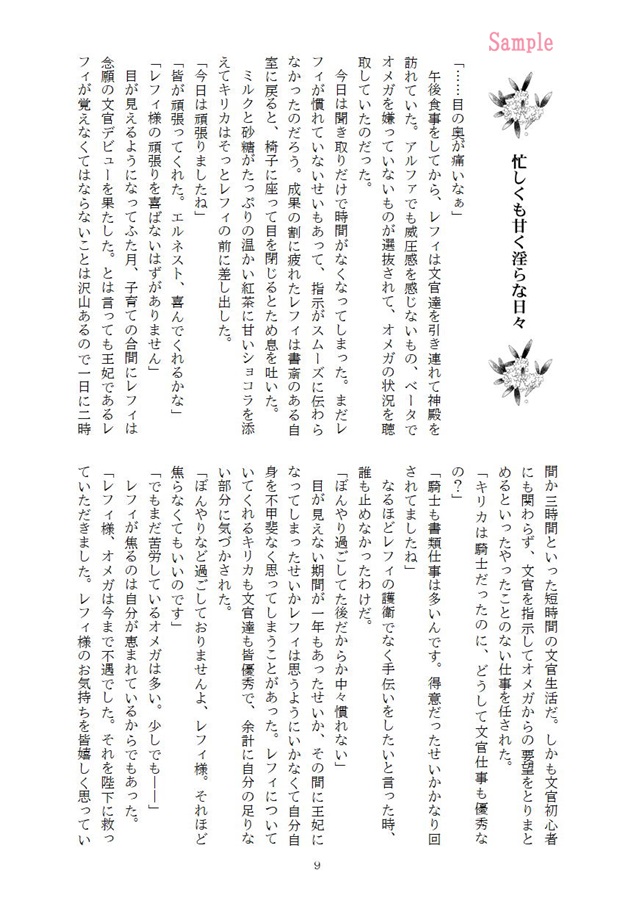 Sample
忙しくも甘く淫らな日々
「……目の奥が痛いなぁ」
　午後食事をしてから、レフィは文官達を引き連れて神殿を
訪れていた。アルファでも威圧感を感じないもの、ベータで
オメガを嫌っていないものが選抜されて、オメガの状況を聴
取していたのだった。
　今日は聞き取りだけで時間がなくなってしまった。まだレ
フィが慣れていないせいもあって、指示がスムーズに伝わら
なかったのだろう。成果の割に疲れたレフィは書斎のある自
室に戻ると、椅子に座って目を閉じるとため息を吐いた。
　ミルクと砂糖がたっぷりの温かい紅茶に甘いショコラを添
えてキリカはそっとレフィの前に差し出した。
「今日は頑張りましたね」
「皆が頑張ってくれた。エルネスト、喜んでくれるかな」
「レフィ様の頑張りを喜ばないはずがありません」
　目が見えるようになってふた月、子育ての合間にレフィは
念願の文官デビューを果たした。とは言っても王妃であるレ
フィが覚えなくてはならないことは沢山あるので一日に二時
間か三時間といった短時間の文官生活だ。しかも文官初心者
にも関わらず、文官を指示してオメガからの要望をとりまと
めるといったやったことのない仕事を任された。
「キリカは騎士だったのに、どうして文官仕事も優秀な
の？」
「騎士も書類仕事は多いんです。得意だったせいかかなり回
されてましたね」
　なるほどレフィの護衛でなく手伝いをしたいと言った時、
誰も止めなかったわけだ。
「ぼんやり過ごしてた後だからか中々慣れない」
　目が見えない期間が一年もあったせいか、その間に王妃に
なってしまったせいかレフィは思うようにいかなくて自分自
身を不甲斐なく思ってしまうことがあった。レフィについて
いてくれるキリカも文官達も皆優秀で、余計に自分の足りな
い部分に気づかされた。
「ぼんやりなど過ごしておりませんよ、レフィ様。それほど
焦らなくてもいいのです」
「でもまだ苦労しているオメガは多い。少しでも――」
　レフィが焦るのは自分が恵まれているからでもあった。
「レフィ様、オメガは今まで不遇でした。それを陛下に救っ
ていただきました。レフィ様のお気持ちを皆嬉しく思ってい
9